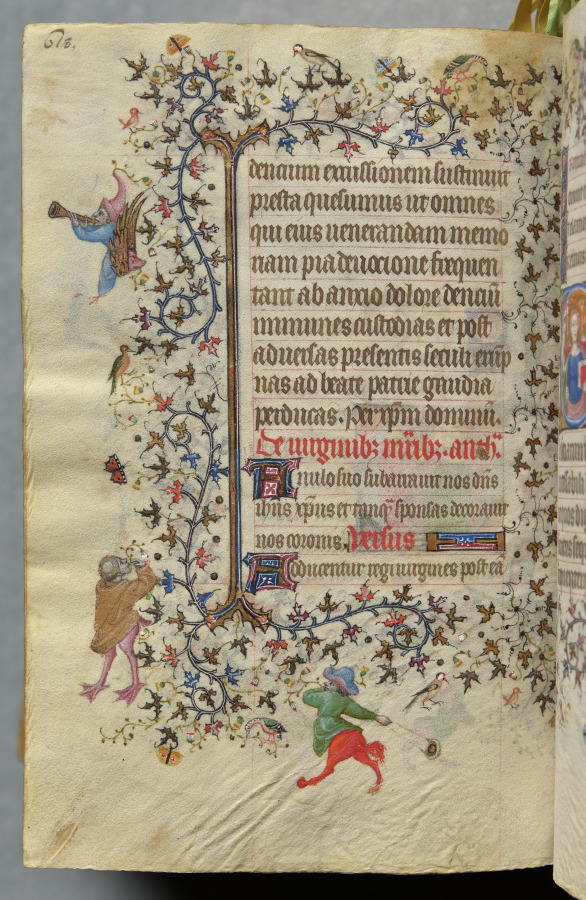 dencium excussionem sustinuit
presta quesumus ut omnes
qui eius uenerandam memo
riam pia deuocione frequen
tant ab anxio dolore denciū
immunes custodias et post
aduersas presentis seculi
nas ad beate patrie gaudia
perducas. Per xp̄m dominū.
De uirginibz m̄ribz. anth̄.
Anulo suo subarrauit nos dn̄s
ihūs xp̄us et tanq̄ sponsas decorauit
nos coronis. Versus
Adducentur regi uirgines post eā